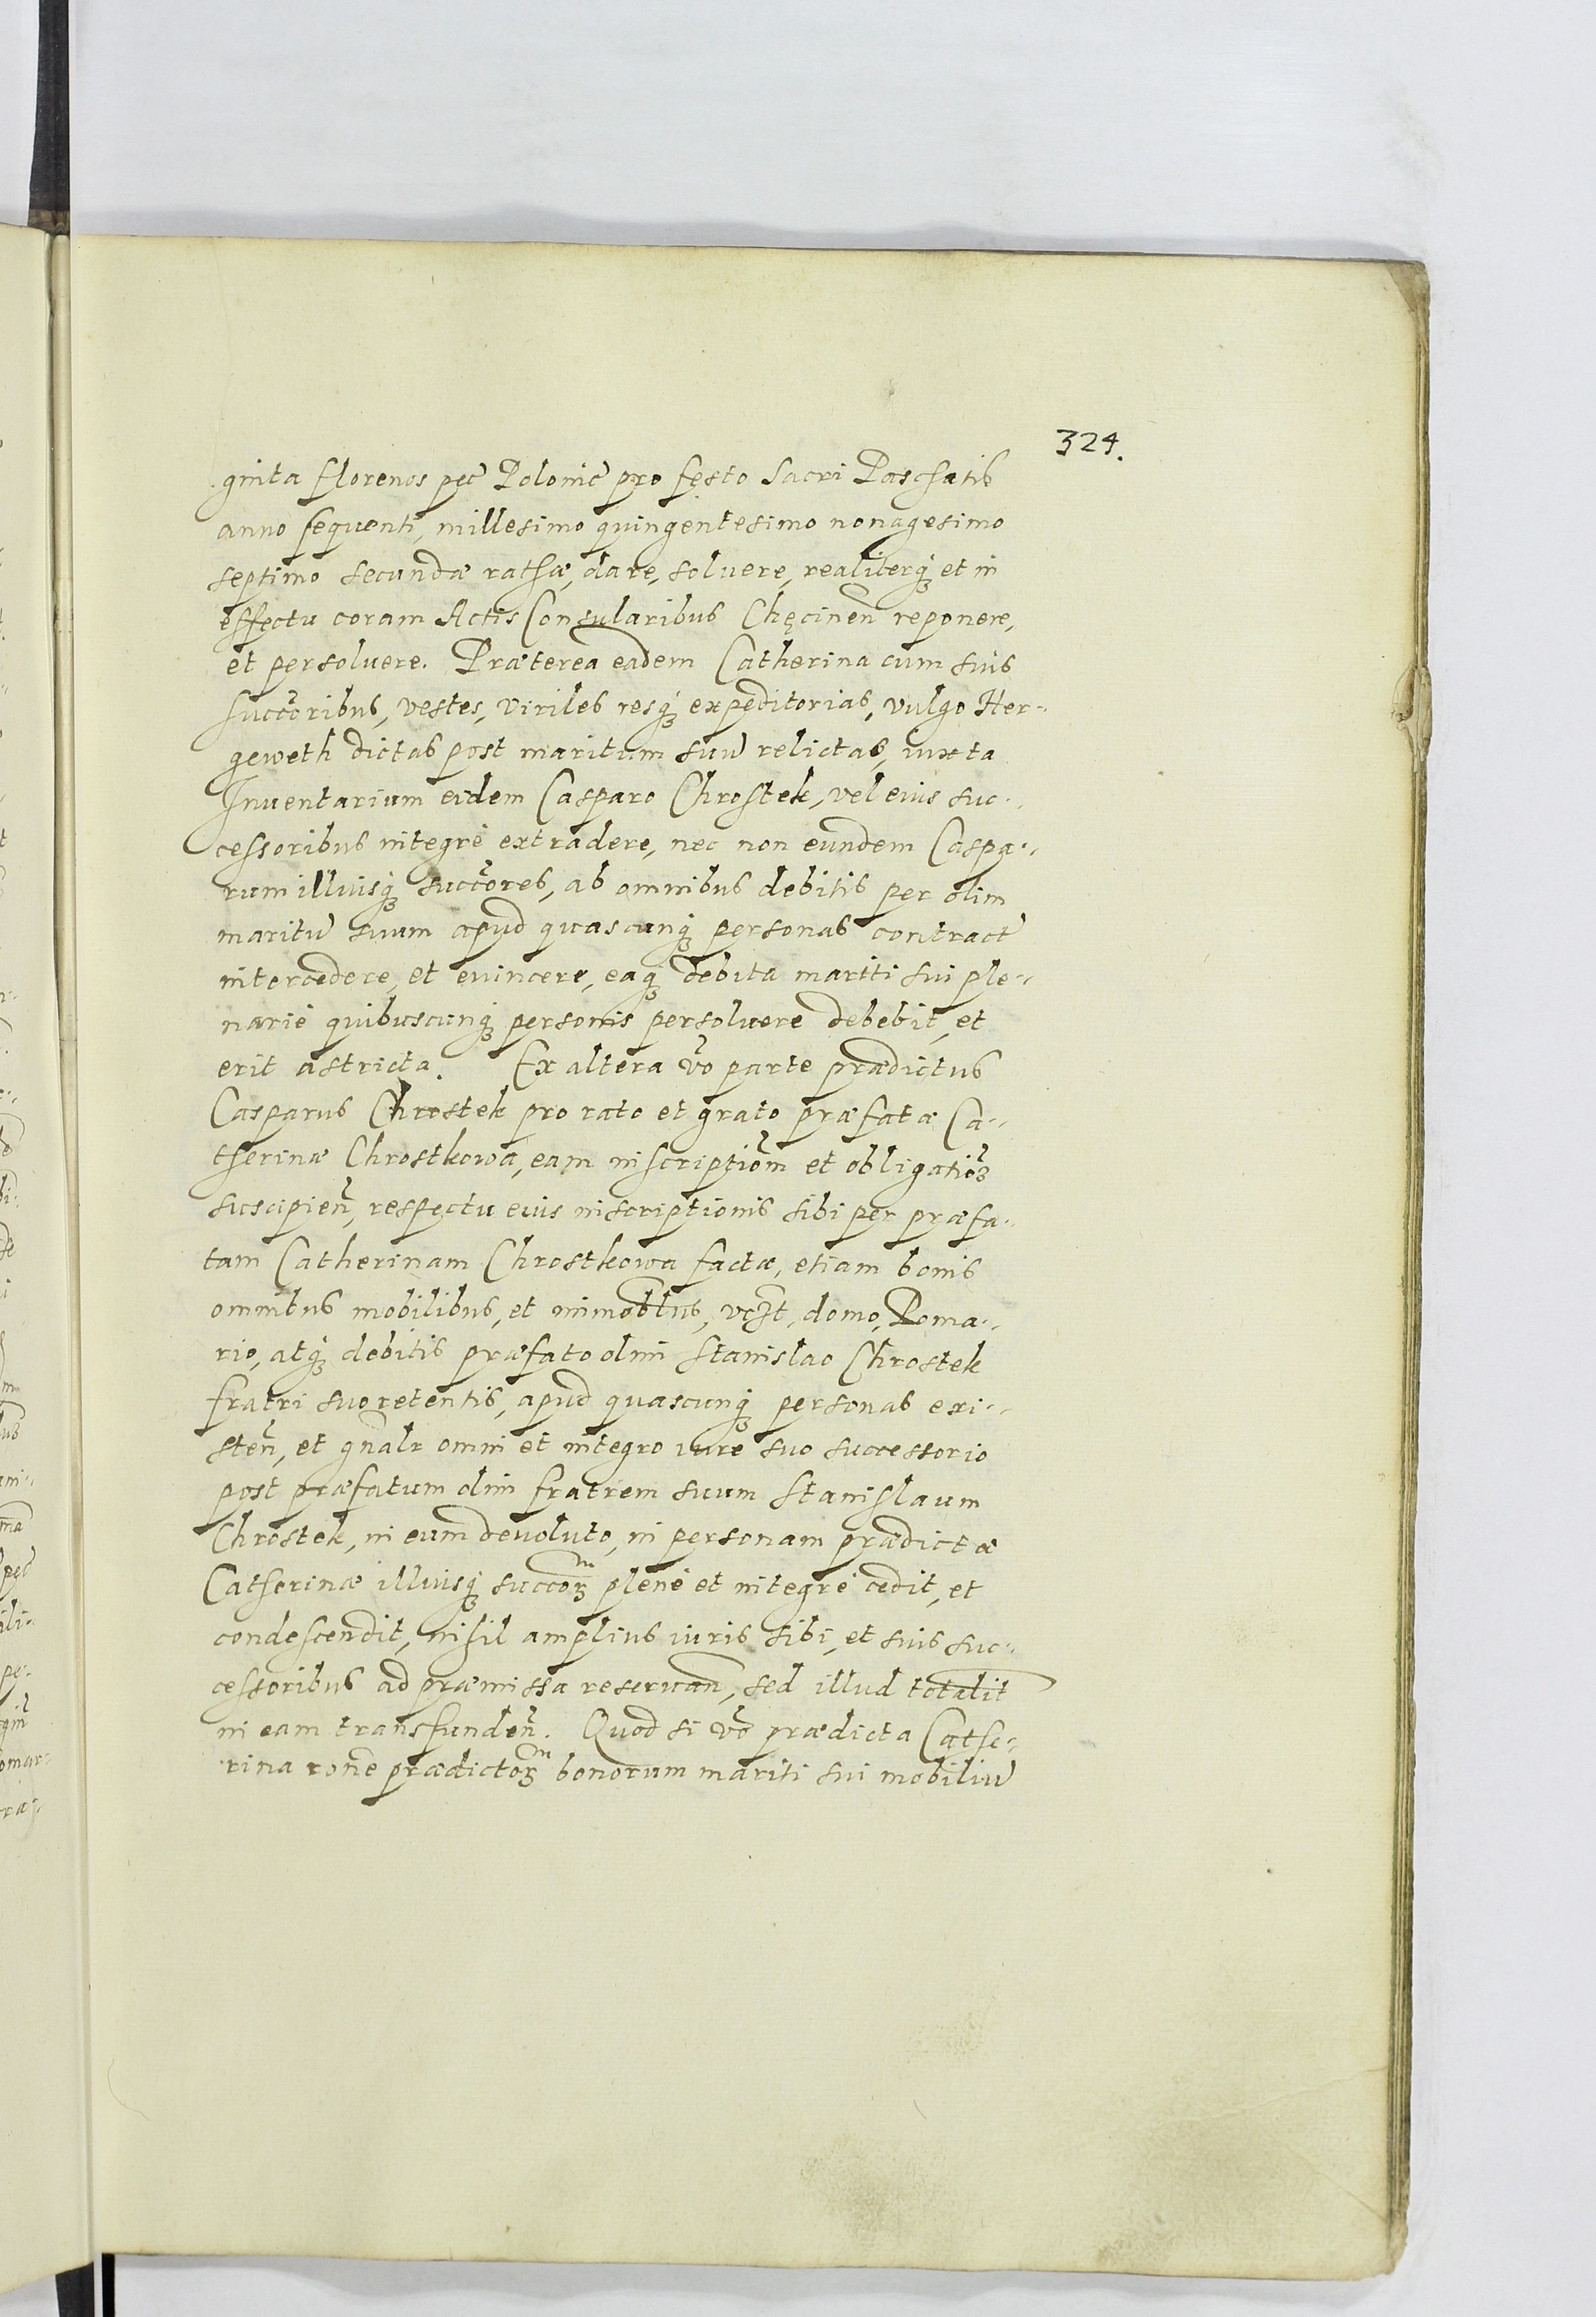 324.
ginta florenos pec̃ Polonic̃ pro festo Sacri Paschatis
anno sequenti, millesimo quingentesimo nonagesimo
septimo secundæ rathæ, dare, soluere, realiterq́ꝫ et in
effectu coram Actis Consularibus Chęcineñ reponere,
et persoluere. Præterea eadem Catherina cum suis
succc̃oribus, vestes, viriles resq́ꝫ expeditorias, vulgo Her-
geweth dictas post maritum suũ relictas, iuxta
Inuentarium eidem Casparo Chrostek, vel eius suc-
cessoribus integrè extradere, nec non eundem Caspa-
rum illiusq́ꝫ succc̃ores, ab omnibus debitis per olim
maritũ suum apud quascunq́ꝫ personas contract̃
intercedere, et euincere, eaq́ꝫ debita mariti sui ple-
nariè quibuscunq́ꝫ personis persoluere debebit, et
erit astricta. Ex altera ṽo parte prædictus
Casparus Chrostek pro rato et grato præfatæ Ca-
therinæ Chrostkowa, eam inscriptiõm et obligatiõꝫ
suscipieñ, respectu eius inscriptionis sibi per præfa-
tam Catherinam Chrostkowa factæ, etiam bonis
omnibus mobilibus, et immobl̃bus, vcꝫt, domo, Poma-
rio, atq́ꝫ debitis præfato olim Stanislao Chrostek
fratri suo retentis, apud quascunq́ꝫ personas exi-
steñ, et gñalr omni et integro iure suo successorio
post præfatum olim fratrem suum Stanislaum
Chrostek, in eum deuoluto, in personam prædictæ
Catherinæ illiusq́ꝫ succcoꝝ plenè et integrè cedit, et
condescendit, nihil amplius iuris sibi, et suis suc-
cessoribus ad præmissa reseruañ, sed illud totalit̃
in eam transfundeñ. Quod si ṽo prædicta Cathe-
rina rõne prædictoꝝ bonorum mariti sui mobiliũ